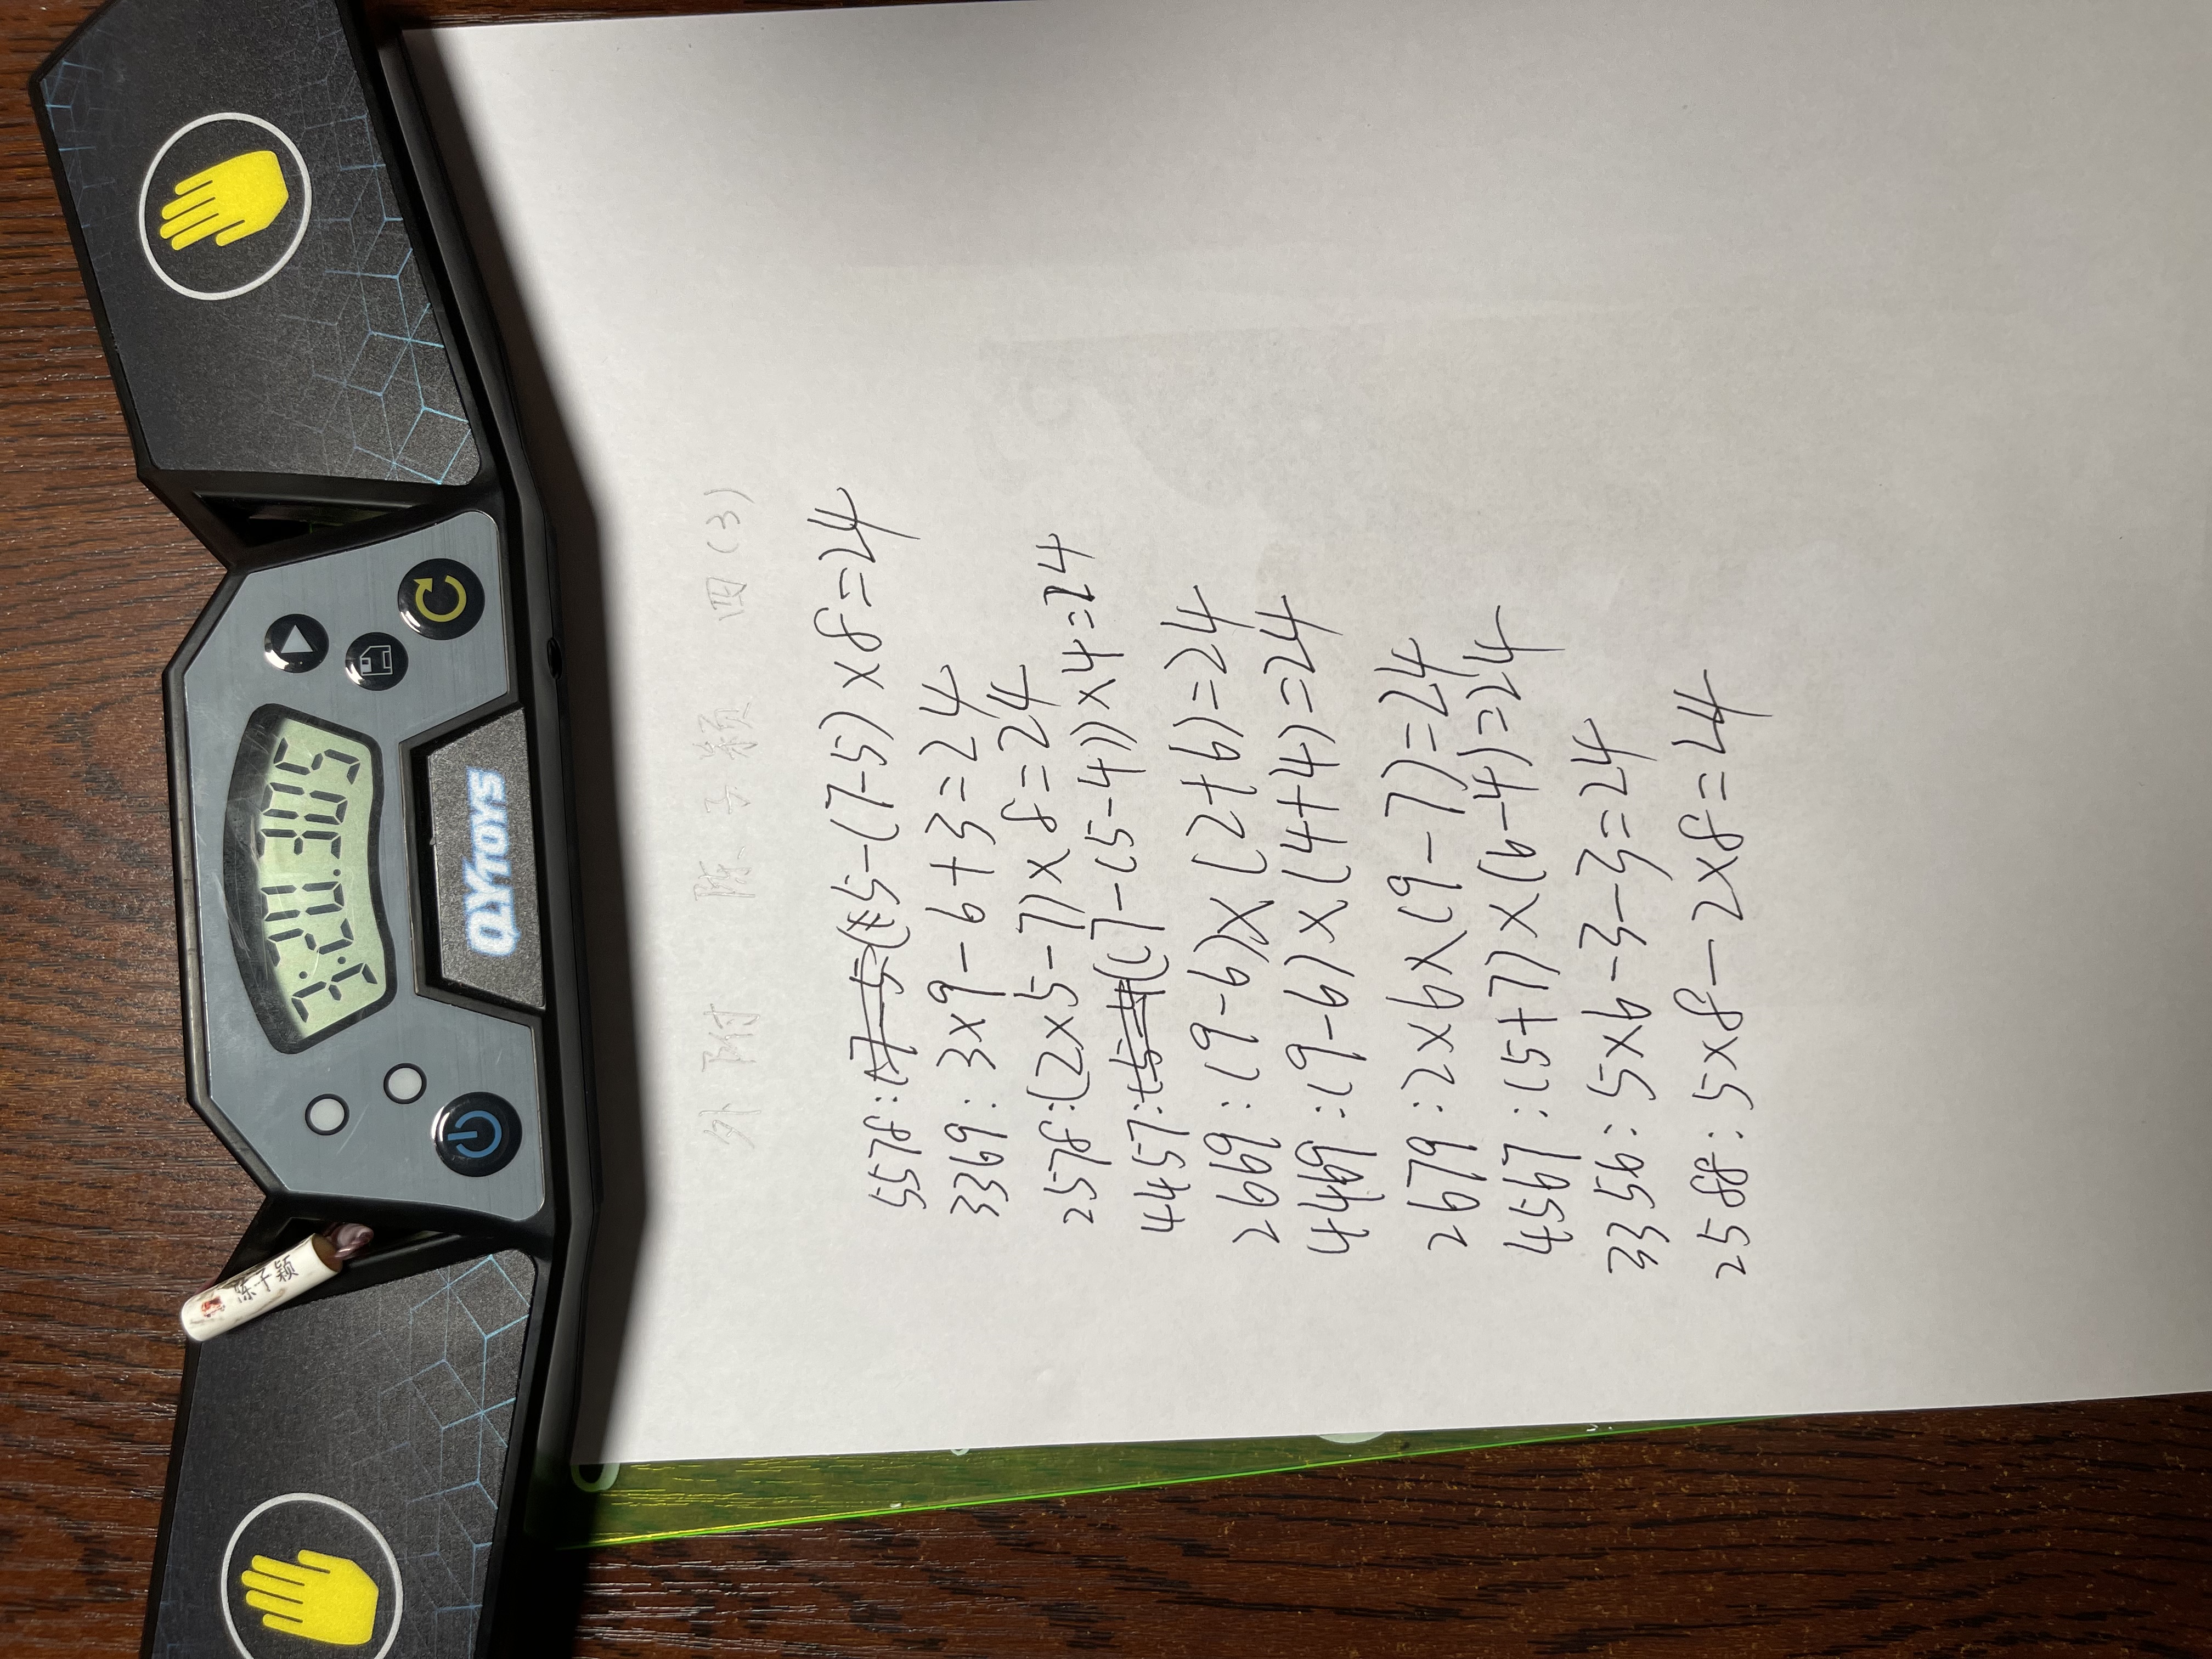 3:20.305
QYTOYS
陈子颖
外附 陈子颖 四(3)
5578:(5-(7-5)×8=24
3369:3×9-6+3=24
2578:(2×5-7)×8=24
4457:(7-(5-4))×4=24
2669:(9-6)×(2+6)=24
4469:(9-6)×(4+4)=24
2679:2×6×(9-7)=24
4567:(5+7)×(6-4)=24
3356:5×6-3-3=24
2588:5×8-2×8=24